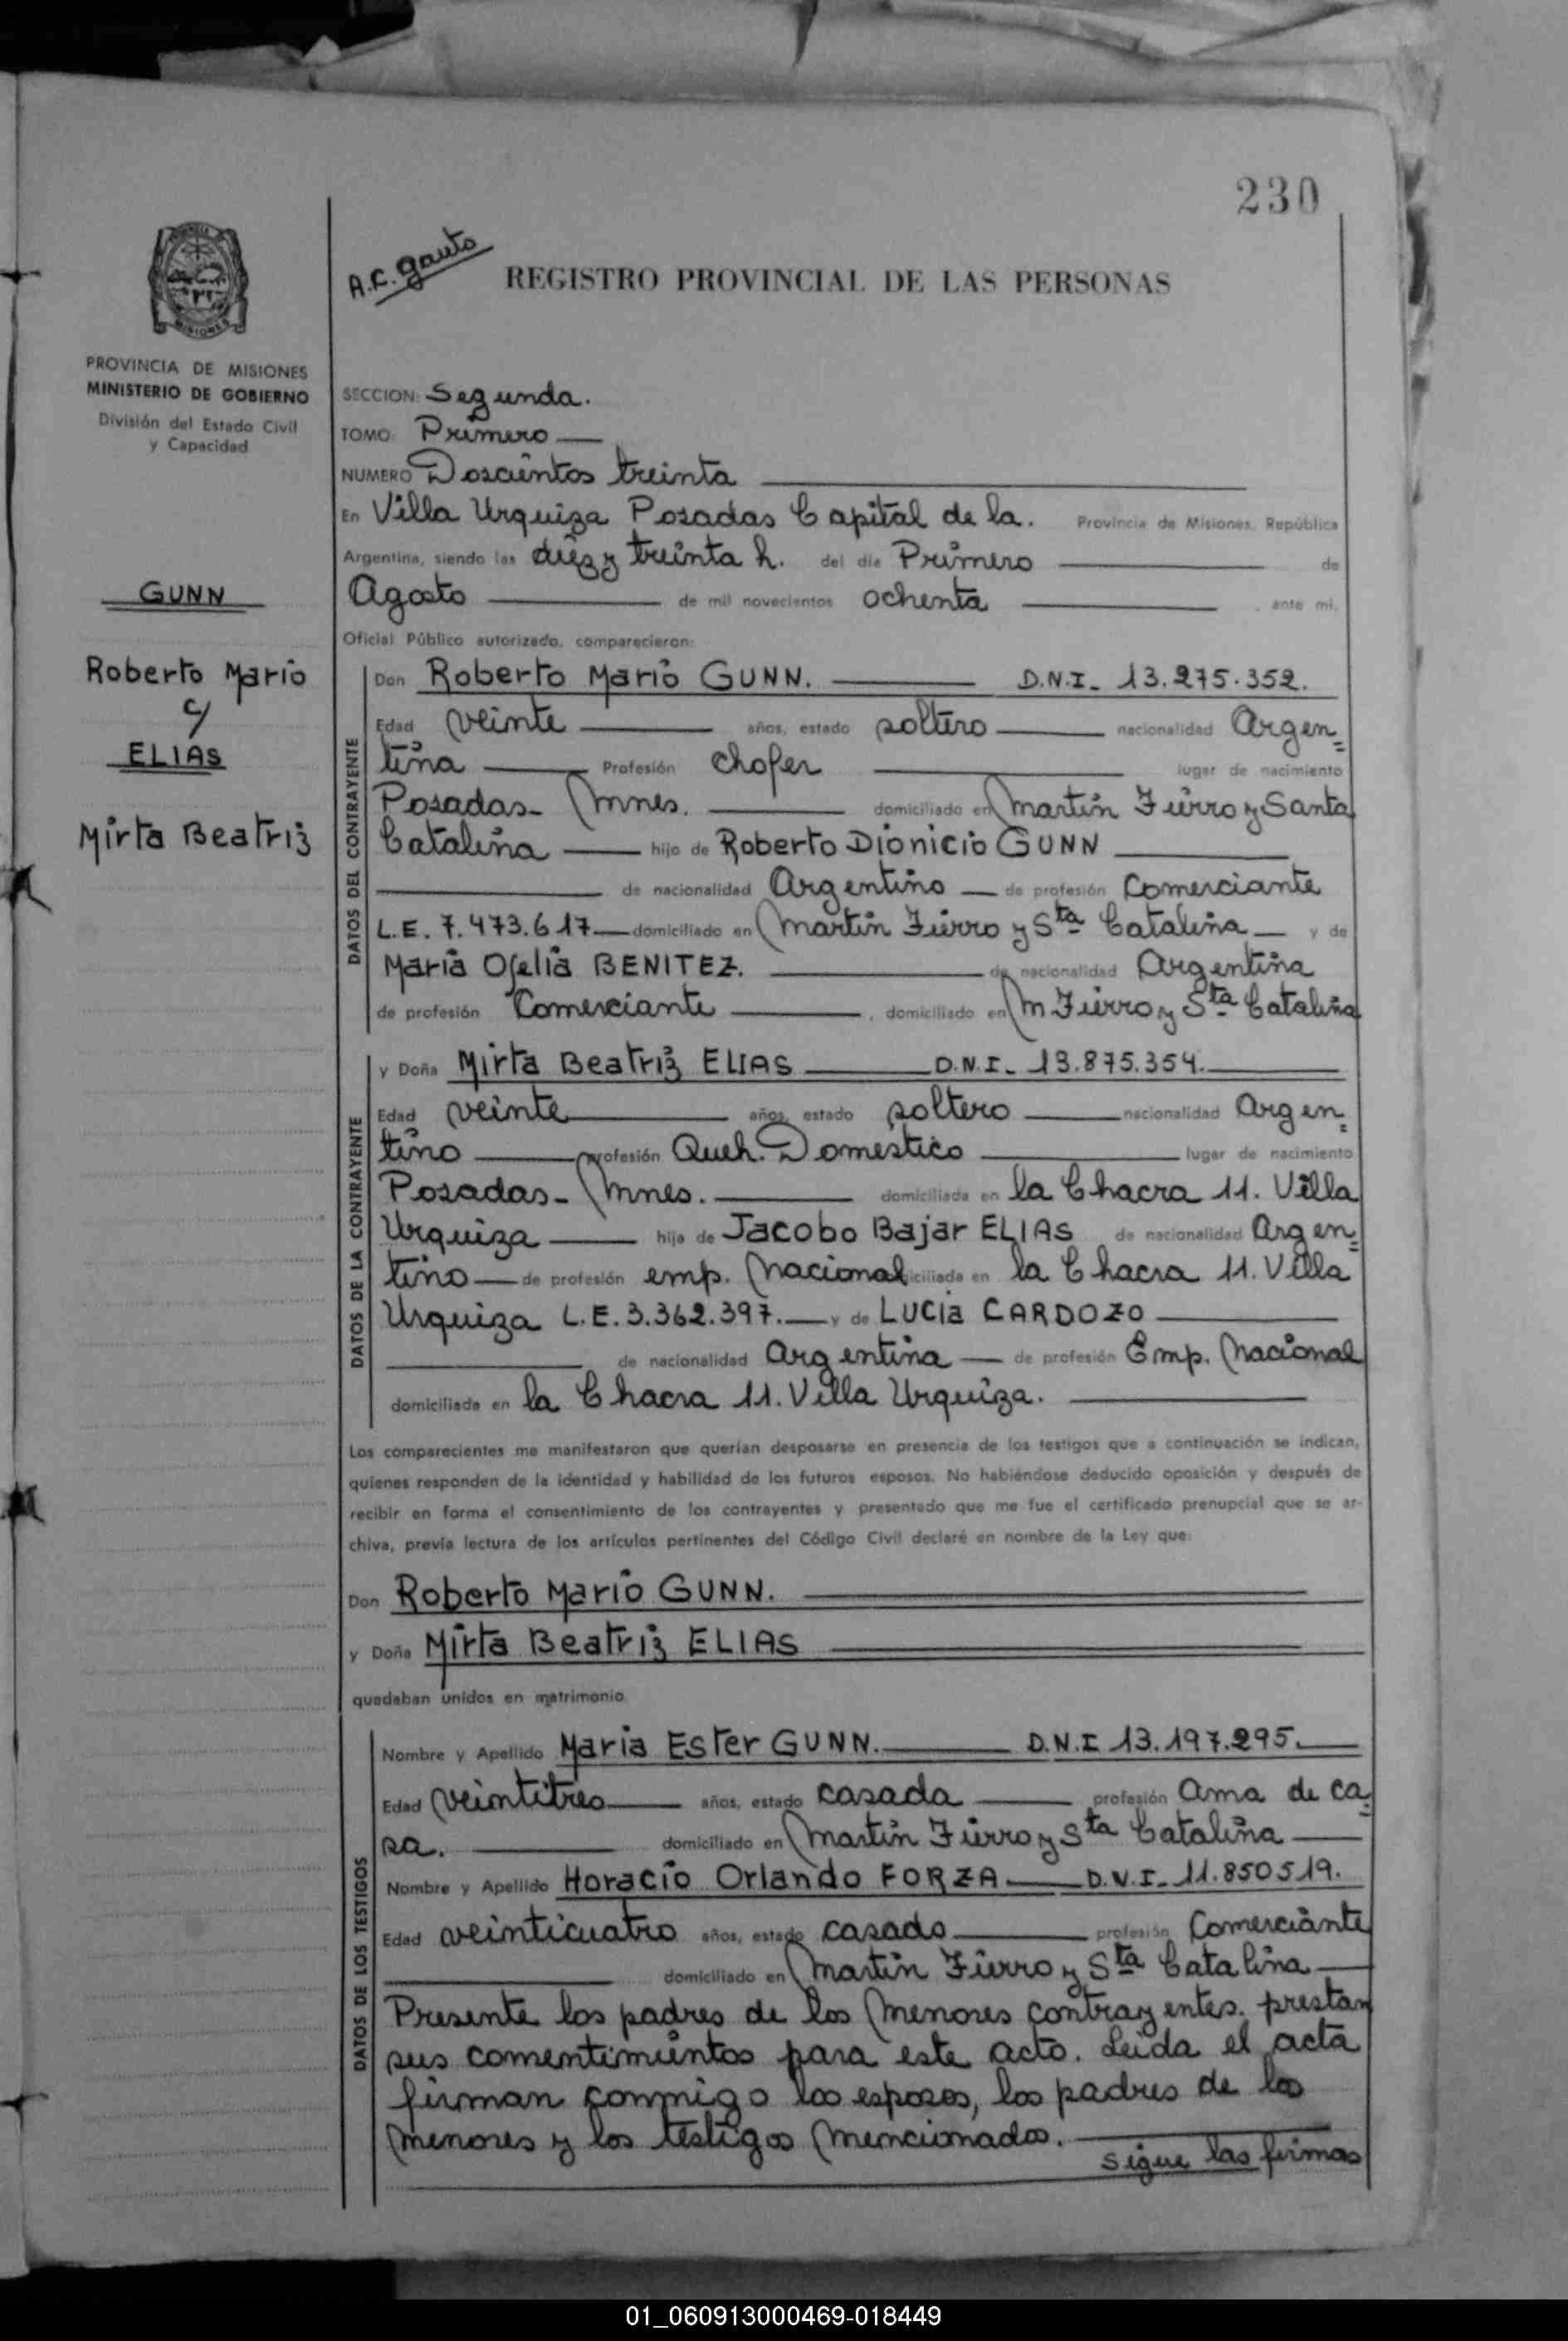 230
A.C. Gauto
REGISTRO PROVINCIAL DE LAS PERSONAS
MISIONES
PROVINCIA DE MISIONES
MINISTERIO DE GOBIERNO
División del Estado Civil
y Capacidad
GUNN
Roberto Mario
c/
ELIAS
Mirta Beatriz
SECCION: Segunda.
TOMO: Primero
NUMERO Doscientos treinta
En Villa Urquiza Posadas Capital de la. Provincia de Misiones, República
Argentina, siendo las diez y treinta h. del día Primero de
Agosto de mil novecientos ochenta, ante mi,
Oficial Público autorizado, comparecieron:
DATOS DEL CONTRAYENTE
Don Roberto Mario GUNN. D.N.I- 13.275.352.
Edad veinte años, estado soltero nacionalidad Argen=
tina Profesión chofer lugar de nacimiento
Posadas- Mnes. domiciliado en Martin Fierro y Santa
Catalina hijo de Roberto Dionicio GUNN
de nacionalidad Argentino de profesión Comerciante
L.E. 7.473.617 domiciliado en Martin Fierro y Sta Catalina y de
Maria Ofelia BENITEZ. de nacionalidad Argentina
de profesión Comerciante, domiciliado en M Fierro y Sta Catalina
DATOS DE LA CONTRAYENTE
y Doña Mirta Beatriz ELIAS D.N.I- 13.875.354.
Edad veinte años, estado soltero nacionalidad Argen=
tino profesión Queh. Domestico lugar de nacimiento
Posadas- Mnes. domiciliada en la Chacra 11. Villa
Urquiza hija de Jacobo Bajar ELIAS de nacionalidad Argen=
tino de profesión emp. Nacional iciliada en la Chacra 11. Villa
Urquiza L.E. 3.362.397. y de Lucia CARDOZO
de nacionalidad Argentina de profesión Emp. Nacional
domiciliada en la Chacra 11. Villa Urquiza.
Los comparecientes me manifestaron que querían desposarse en presencia de los testigos que a continuación se indican,
quienes responden de la identidad y habilidad de los futuros esposos. No habiéndose deducido oposición y después de
recibir en forma el consentimiento de los contrayentes y presentado que me fue el certificado prenupcial que se ar-
chiva, previa lectura de los artículos pertinentes del Código Civil declaré en nombre de la Ley que:
Don Roberto Mario GUNN.
y Doña Mirta Beatriz ELIAS
quedaban unidos en matrimonio.
DATOS DE LOS TESTIGOS
Nombre y Apellido Maria Ester GUNN. D.N.I 13.197.295.
Edad veintitres años, estado casada profesión Ama de ca=
sa. domiciliado en Martin Fierro y Sta Catalina
Nombre y Apellido Horacio Orlando FORZA D.N.I- 11.850519.
Edad veinticuatro años, estado casado profesión Comerciante
domiciliado en Martin Fierro y Sta Catalina
Presente los padres de los menores contrayentes. prestan
sus comentimientos para este acto. Leida el acta
firman conmigo los esposos, los padres de los
menores y los testigos mencionados.
sigue las firmas
01_060913000469-018449